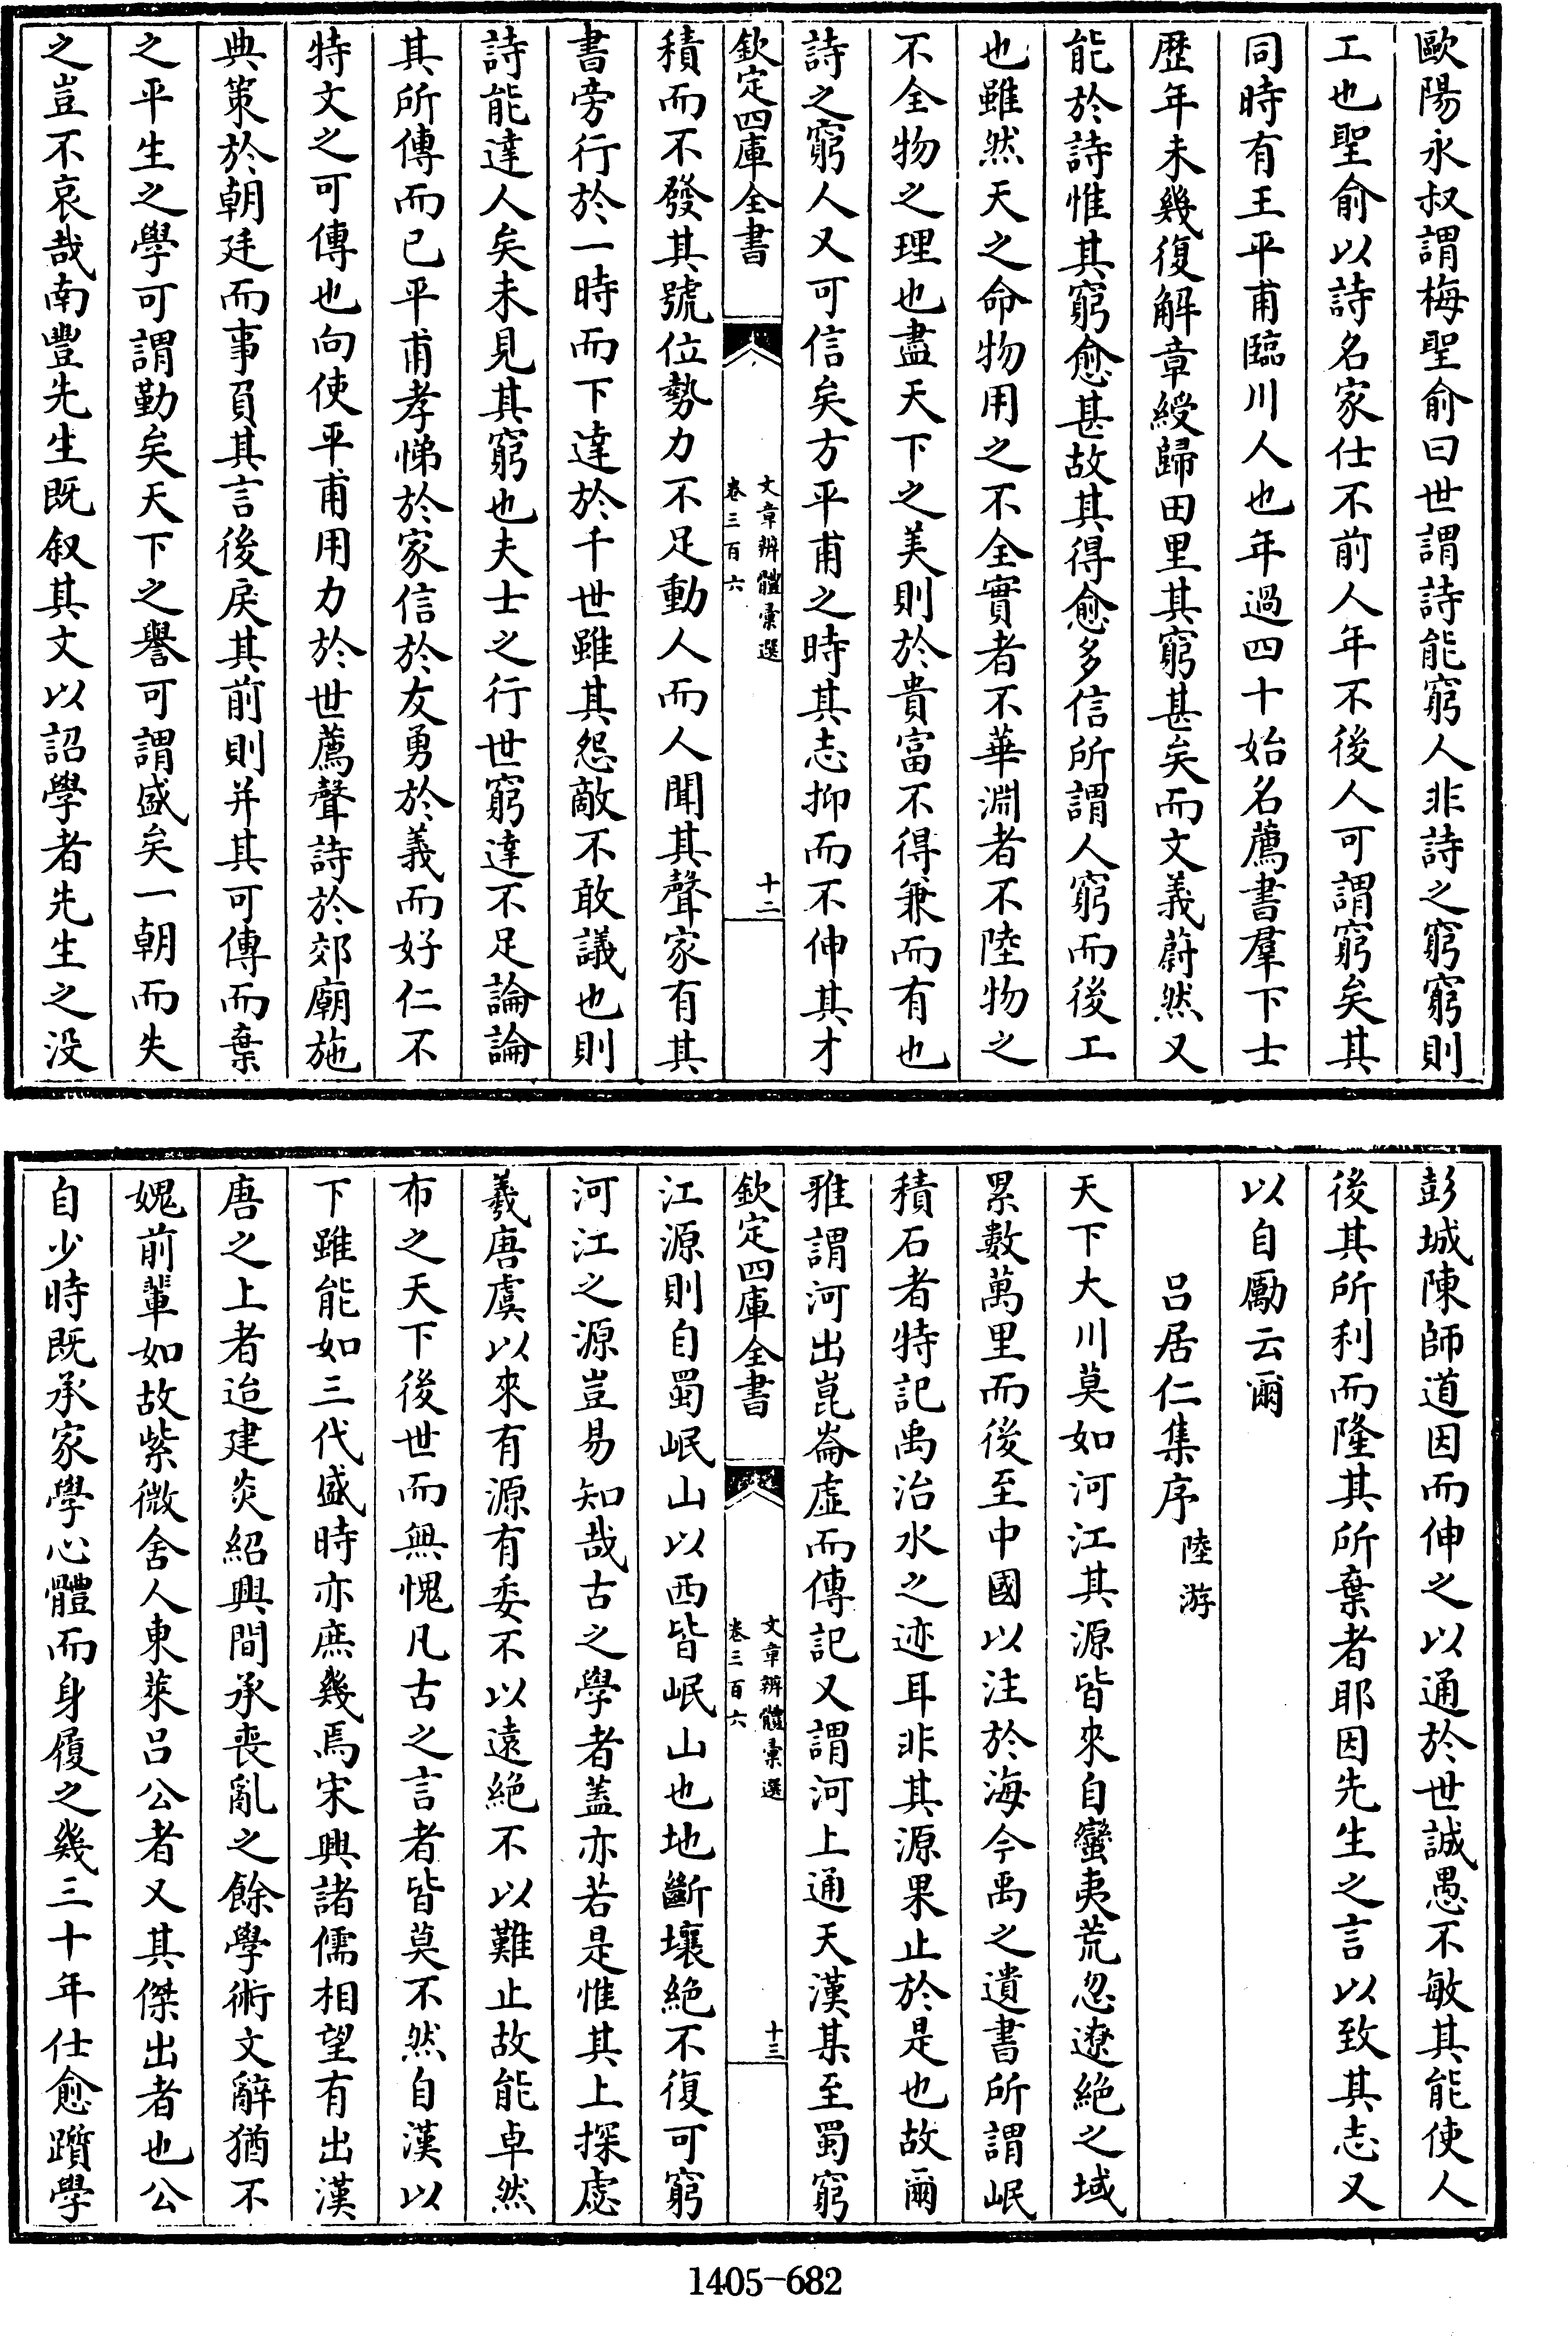 歐陽永叔謂梅聖俞曰世謂詩能窮人非詩之窮窮則
工也聖俞以詩名家仕不前人年不後人可謂窮矣其
同時有王平甫臨川人也年過四十始名薦書羣下士
歷年未幾復解章綬歸田里其窮甚矣而文義蔚然又
能於詩惟其窮愈甚故其得愈多信所謂人窮而後工
也雖然天之命物用之不全實者不華淵者不陸物之
不全物之理也盡天下之美則於貴富不得兼而有也
詩之窮人又可信矣方平甫之時其志抑而不伸其才
欽定四庫全書
文章辨體彙選
卷三百六
十二
積而不發其號位勢力不足動人而人聞其聲家有其
書旁行於一時而下達於千世雖其怨敵不敢議也則
詩能達人矣未見其窮也夫士之行世窮達不足論論
其所傳而已平甫孝悌於家信於友勇於義而好仁不
特文之可傳也向使平甫用力於世薦聲詩於郊廟施
典策於朝廷而事負其言後戾其前則并其可傳而棄
之平生之學可謂勤矣天下之譽可謂盛矣一朝而失
之豈不哀哉南豐先生既叙其文以詔學者先生之没
彭城陳師道因而伸之以通於世誠愚不敏其能使人
後其所利而隆其所棄者耶因先生之言以致其志又
以自勵云爾
呂居仁集序陸游
天下大川莫如河江其源皆來自蠻夷荒忽遼絕之域
累數萬里而後至中國以注於海今禹之遺書所謂岷
積石者特記禹治水之迹耳非其源果止於是也故爾
雅謂河出崑崙虛而傳記又謂河上通天漢某至蜀窮
欽定四庫全書
文章辨體彙選
卷三百六
十三
江源則自蜀岷山以西皆岷山也地斷壤絕不復可窮
河江之源豈易知哉古之學者蓋亦若是惟其上探虙
羲唐虞以來有源有委不以遠絕不以難止故能卓然
布之天下後世而無愧凡古之言者皆莫不然自漢以
下雖能如三代盛時亦庶幾焉宋興諸儒相望有出漢
唐之上者迨建炎紹興間承喪亂之餘學術文辭猶不
媿前輩如故紫微舍人東萊呂公者又其傑出者也公
自少時既承家學心體而身履之幾三十年仕愈躓學
1405-682